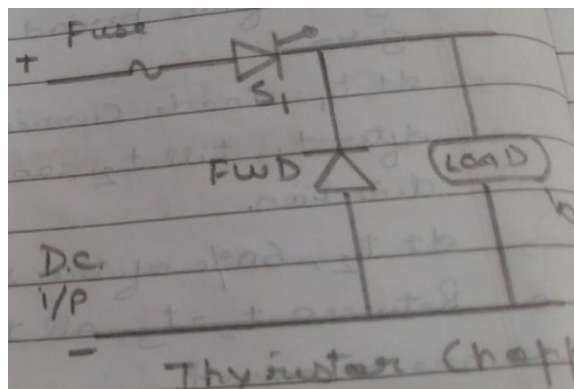 Fuse
+
S1
FWD
LOAD
D.C.
i/P
-
Thyristor Chopp